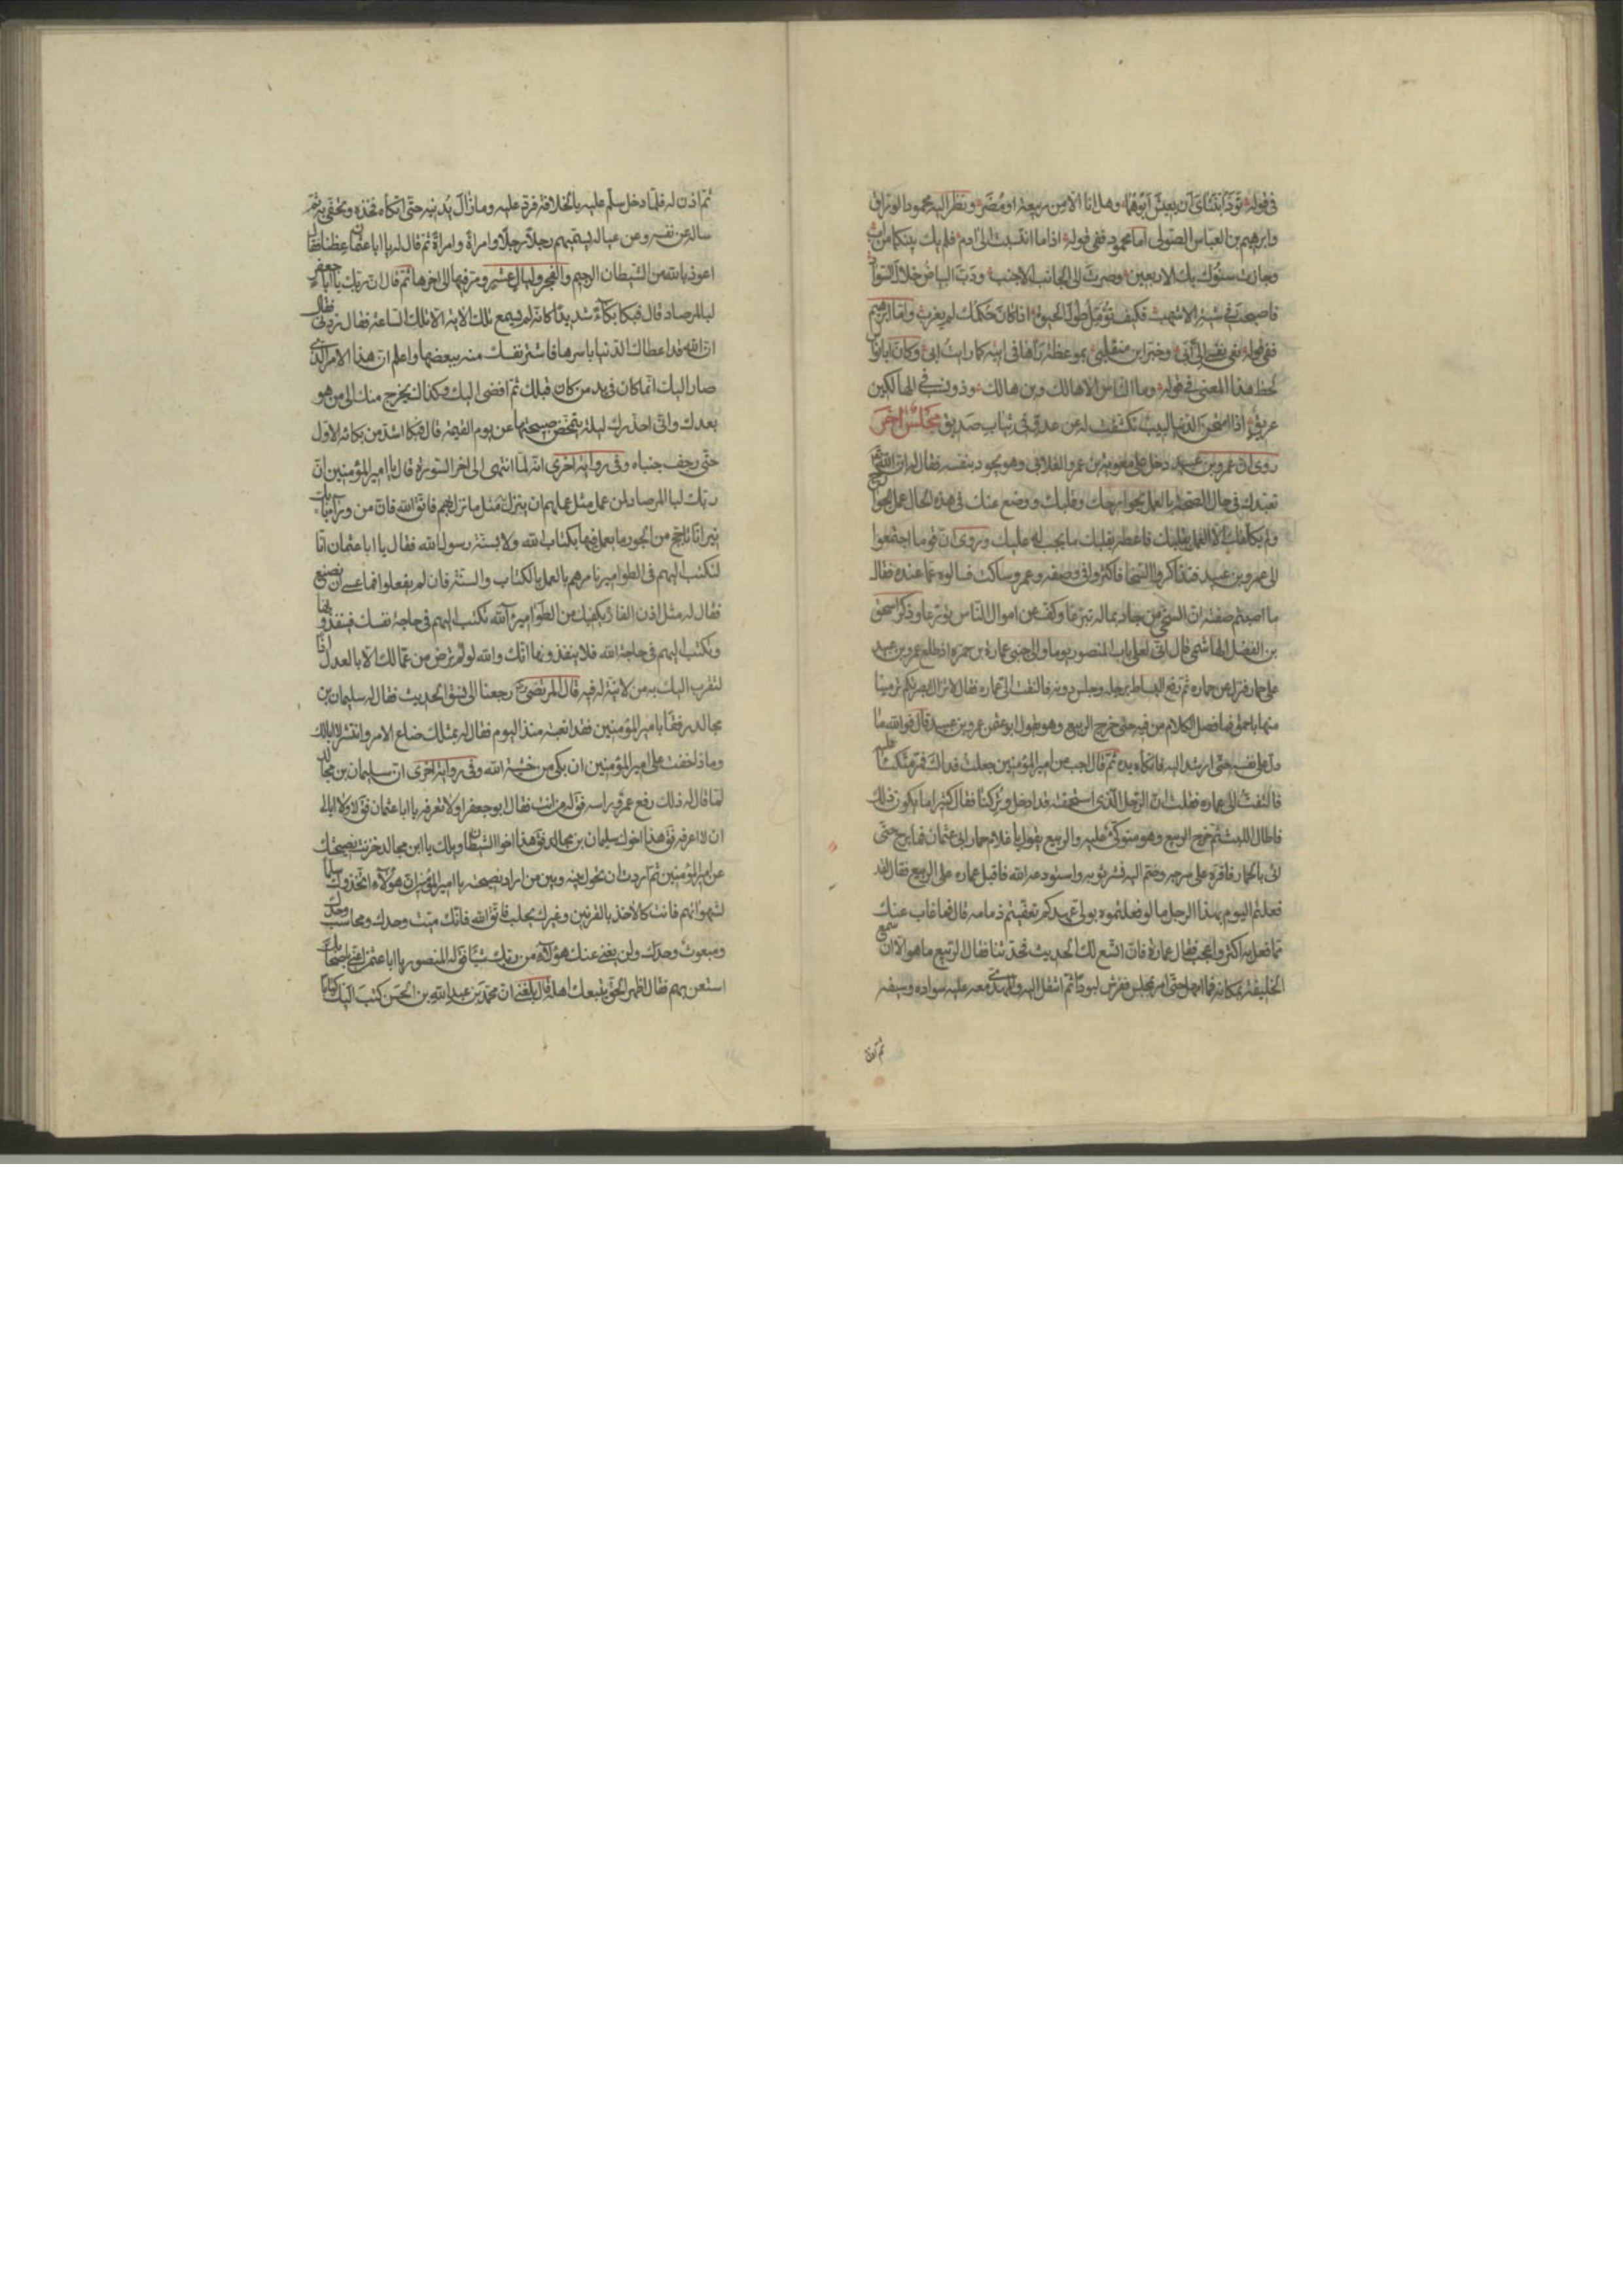 في قوله تود ابنتاي ان يعيش ابوهما وهل انا الا من ربيعة او مضر ونظر اليه محمود الوراق
وابرهيم بن العباس الصولي اما محمود ففي قوله اذا ما انتسبت الى ادم فلم يك بينكما من اب
وجازت سنوك بك الاربعين وصرت الى الجانب الاجنب ودب البياض خلال السواد
فاصبحت في شية الاشهب فكيف تؤمل طول الحيوة اذا كان حكمك لم يعزب واما ابرهيم
ففي قوله نعى نفسي الى ابي وخبر اين منقلبي بموعظة رآها في ابيه كما رأيت ابي وكان ابا نواس
لحظ هذا المعنى في قوله وما الناس الا هالك وبن هالك وذو نسب في الهالكين
عريق اذا امتحن الدنيا لبيب تكشفت له عن عدو في ثياب صديق مجلس اخر
روي ان عمرو بن عبيد دخل على معوية بن عمرو الغلابي وهو يجود بنفسه فقال له ان الله تع
تعبدك في حال الصحة بالعمل بجوارحك وقلبك ووضع عنك في هذه الحال عمل الجوارح
ولم يكلفك الا العمل بقلبك فاعطه بقلبك ما يجب له عليك وروي ان قوما اجتمعوا
الى عمرو بن عبيد فتذاكروا السخا فاكثروا في وصفه وعمرو ساكت فسالوه عما عنده فقال
ما اصبتم صفته ان السخي من جاد بماله تبرعا وكف عن اموال الناس تورعا وذكر اسحق
بن الفضل الهاشمي قال اني لعلى باب المنصور يوما والى جنبي عمارة بن حمزة اذ طلع عمرو بن عبيد
على حمار فنزل عن حماره ثم دفع البساط برجله وجلس دونه فالتفت الى عماره فقال لا تزال بصرتكم ترمينا
منها باحمق فما فصل الكلام من فيه حتى خرج الربيع وهو يقول ابو عثمن عمرو بن عبيد قال فوالله ما
دل على نفسه حتى ارشد اليه فاتكأه يده ثم قال اجب امير المؤمنين جعلت فداك فمر متكئا عليه
فالتفت الى عماره فقلت ان الرجل الذي استحمقت قد ادخل وتركنا فقال كثيرا ما يكون ذلك
فاطال اللبث ثم خرج الربيع وهو متوكئ عليه والربيع يقول يا غلام حمار ابي عثمان فما برح حتى
اتى بالحمار فاقره على سرجه وضم اليه نشر ثوبه واستودعه الله فاقبل عماره على الربيع فقال لقد
فعلتم اليوم بهذا الرجل ما لو فعلتموه بولي عهدكم لقضيتم ذمامه قال فما غاب عنك
مما فعل به اكثر واعجب فقال عمارة فان اتسع لك الحديث فحدثنا فقال الربيع ما هو الا ان سمع
الخليفة بمكانه فما امهل حتى امر بمجلس ففرش لبودا ثم انتقل اليه والمهدي معه عليه سواده وسيفه
ثم اذن
ثم اذن له فلما دخل سلم عليه بالخلافة فرد عليه وما زال يدنيه حتى اتكأه فخذه وتحفى به ثم
ساله عن نفسه وعن عياله يسميهم رجلا رجلا وامراة وامراة ثم قال له يا ابا عثمان عظنا فقال
اعوذ بالله من الشيطان الرجيم والفجر وليال عشر ومر فيها الى اخرها ثم قال ان ربك يا ابا جعفر
لبالمرصاد قال فبكا بكآء شديدا كانه لم يسمع تلك الاية الا تلك الساعة فقال زدني فقال
ان الله قد اعطاك الدنيا باسرها فاشتر نفسك منه ببعضها واعلم ان هذا الامر الذي
صار اليك انما كان في يد من كان قبلك ثم افضى اليك وكذلك يخرج منك الى من هو
بعدك واني احذرك ليلة تتمخض صبيحتها عن يوم القيمة قال فبكا اشد من بكائه الاول
حتى رجف جنباه وفي رواية اخرى انه لما انتهى الى اخر السورة قال يا امير المؤمنين ان
ربك لبالمرصاد لمن عمل مثل عملهم ان ينزل به مثل ما نزل بهم فاتق الله فان من ورآء بابك
نيرانا تاجج من الجور ما يعمل فيها بكتاب الله ولا بسنة رسول الله فقال يا ابا عثمان انا
لنكتب اليهم في الطوامير نامرهم بالعمل بالكتاب والسنة فان لم يفعلوا فما عسى ان نصنع
فقال له مثل اذن الفارة يكفيك من الطوامير آلله تكتب اليهم في حاجة نفسك فينفذونها
وتكتب اليهم في حاجة الله فلا ينفذونها انك والله لو لم ترض من عمالك الا بالعدل اذا
لتقرب اليك به من لا نية له فيه قال المرتضى رجعنا الى نسق الحديث فقال له سليمان بن
مجالد رفقا بامير المؤمنين فقد اتعبته منذ اليوم فقال له بمثلك ضاع الامر وانتشر لا ابا لك
وما ذا خفت على امير المؤمنين ان بكى من خشية الله وفي رواية اخرى ان سليمان بن مجالد
لما قال له ذلك رفع عمرو راسه فق له من انت فقال ابو جعفر اولا تعرفه يا ابا عثمان فق لا ولا ابالي
ان لا اعرفه فق هذا اخوك سليمان بن مجالد فق هذا اخو الشيطان ويلك يا ابن مجالد خزنت نصيحتك
عن امير المؤمنين ثم اردت ان تحول بينه وبين من اراد نصيحته يا امير المؤمنين ان هؤلآء اتخذوك سلما
لشهواتهم فانت كالآخذ بالقرنين وغيرك يحلب فاتق الله فانك ميت وحدك ومحاسب وحدك
ومبعوث وحدك ولن يغني عنك هؤلآء من ربك شيئا فق له المنصور يا ابا عثمن اعني باصحابك
استعن بهم فقال اظهر الحق يتبعك اهله قال بلغني ان محمد بن عبد الله بن الحسن كتب اليك كتابا